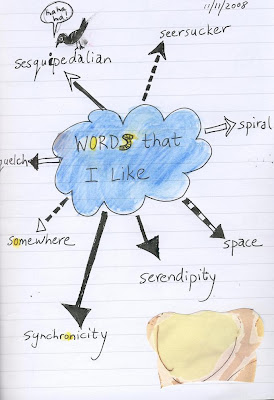 haha
ha
11/11/2008
seersucker
sesquipedalian
spiral
WORDS that
I Like
quelch
somewhere
space
serendipity
synchronicity